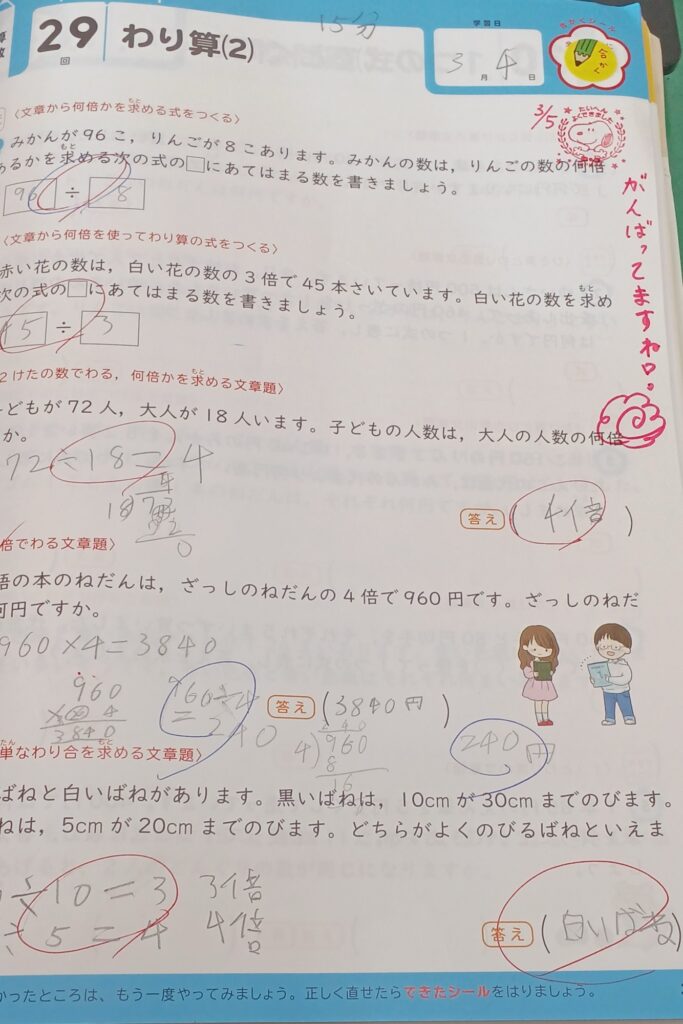 29回 わり算(2) 15分 学習日 3月4日
〈文章から何倍かを求める式をつくる〉
3/5 たいへんよくできました
みかんが96こ，りんごが8こあります。みかんの数は，りんごの数の何倍
あるかを求める次の式の□にあてはまる数を書きましょう。
96 ÷ 8
がんばってますね。
〈文章から何倍を使ってわり算の式をつくる〉
赤い花の数は，白い花の数の3倍で45本さいています。白い花の数を求め
次の式の□にあてはまる数を書きましょう。
45 ÷ 3
2けたの数でわる，何倍かを求める文章題〉
子どもが72人，大人が18人います。子どもの人数は，大人の人数の何倍
か。
72÷18=4
4
18 72
72
0
答え (4倍)
倍でわる文章題〉
語の本のねだんは，ざっしのねだんの4倍で960円です。ざっしのねだ
何円ですか。
960×4=3840
960
4
3840
960÷4
=240
答え (3840円)
240
4)960
8
16
240円
単なわり合を求める文章題〉
ばねと白いばねがあります。黒いばねは，10cmが30cmまでのびます。
ねは，5cmが20cmまでのびます。どちらがよくのびるばねといえま
÷10=3 3倍
÷5=4 4倍
答え (白いばね)
かったところは、もう一度やってみましょう。正しく直せたらできたシールをはりましょう。